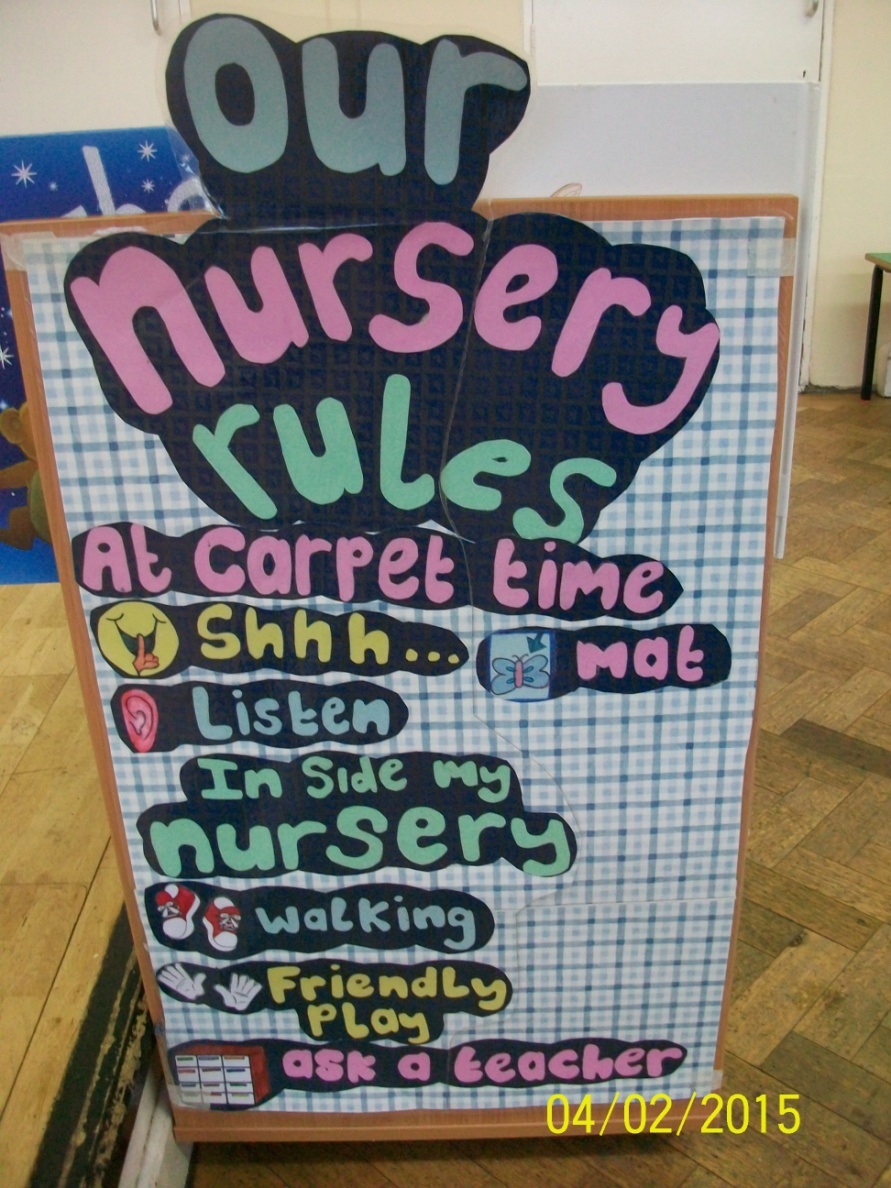 Our
nursery
rules
At carpet time
Shhh...
mat
Listen
In Side my
nursery
walking
Friendly
Play
ask a teacher
04/02/2015